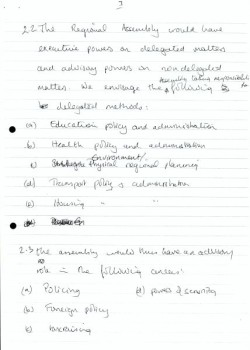 3
2.2 The Regional Assembly would have
executive powers on delegated matters
and advisory powers on non delegated
assembly taking responsibility
matters. We envisage the following for
delegated methods:
(a) Education policy and administration
(b) Health policy and administration
environment/
(c) Physical regional planning
(d) Transport policy & administration
(e) Housing " "
2.3 The assembly would thus have an advisory
role in the following areas:
(a) Policing (d) powers of security
(b) Foreign policy
(c)